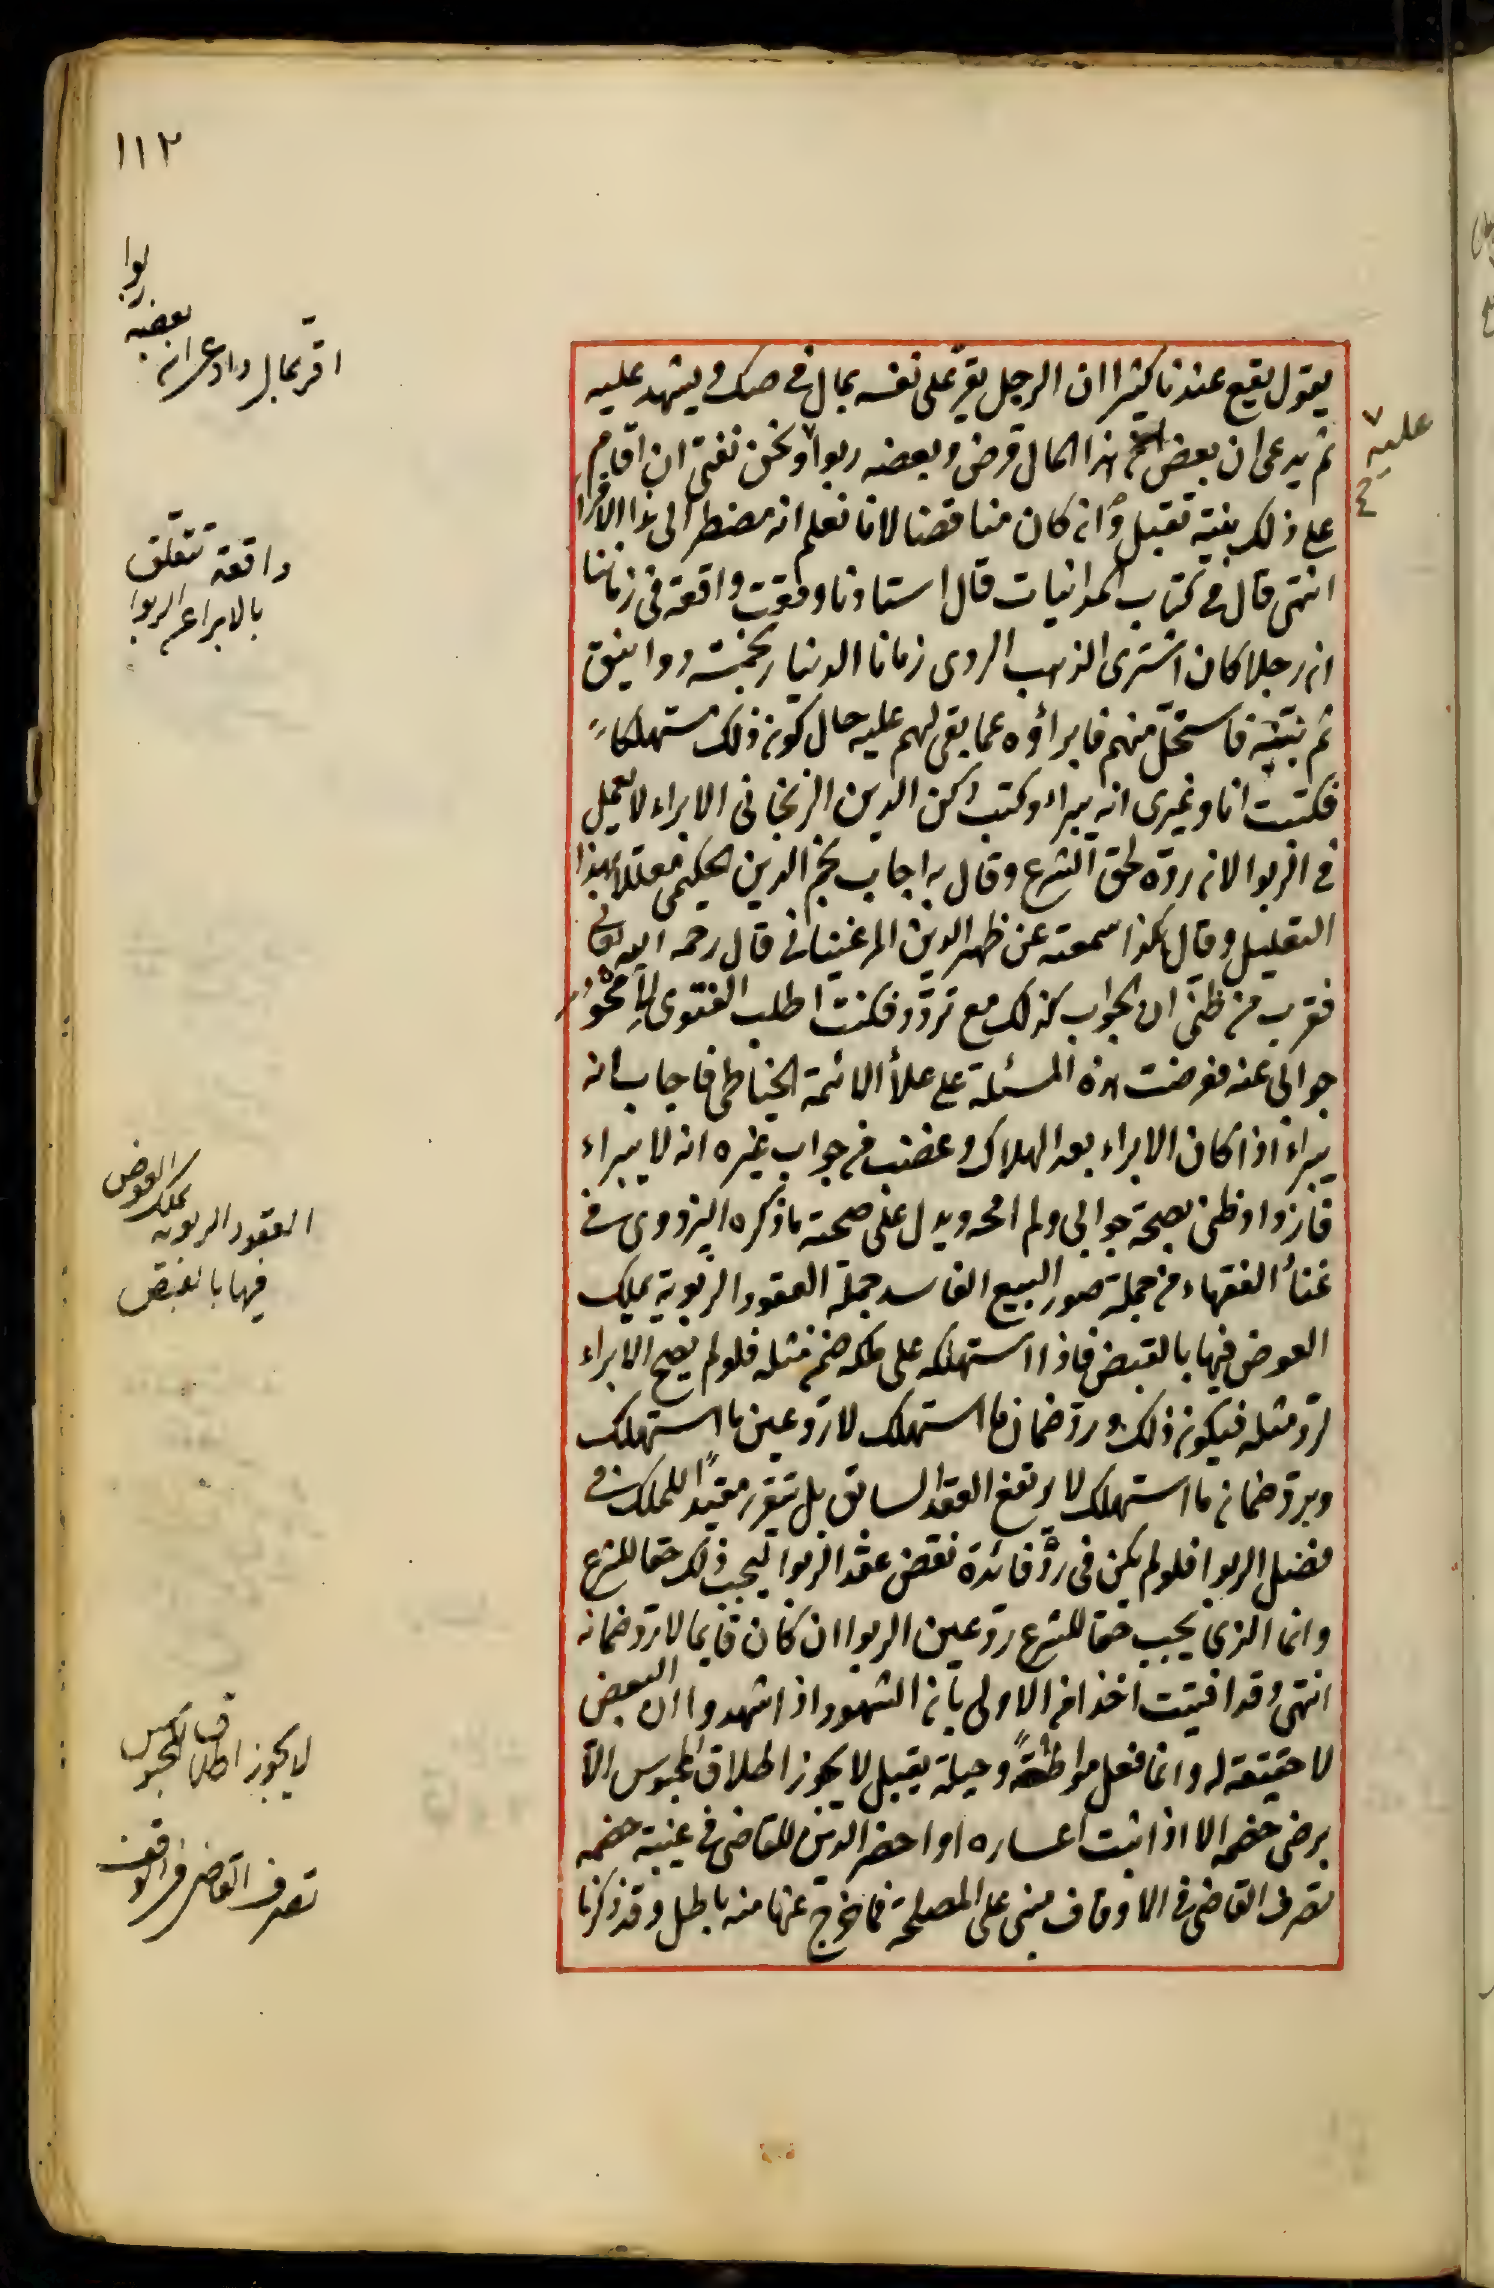 ١١٢
يقول يقع عندنا كثيرا ان الرجل يقر على نفسه بمال في صك ويشهد عليه
ثم يدعي ان بعض هذا المال قرض وبعضه ربوا ونحن نفتي ان اقام
على ذلك بينة تقبل وانه كان مناقضا لانا نعلم انه مضطر الى هذا الاقرار
انتهى قال في كتاب المداينات قال استاذنا وقعت واقعة في زماننا
ان رجلا كان اشترى الذهب الردى زمانا الدينار بخمسة دوانيق
ثم تنبه فاستحل منهم فابرأوه عما بقي لهم عليه حال كون ذلك مستهلكا
فكتبت انا وغيري انه يبراء وكتب ركن الدين الزنجاني الابراء لا يعمل
في الربوا لان رده لحق الشرع وقال به اجاب نجم الدين الحليمي معللا بهذا
التعليل وقال هكذا سمعته عن ظهير الدين المرغيناني قال رحمه الله تعالى
فقرب من ظني ان الجواب كذلك مع تردد فكنت اطلب الفتوى لامحو
جوابي عنه فعرضت هذه المسئلة على علأ الائمة الخياطي فاجاب انه
يبراء اذا كان الابراء بعد الهلاك وغضب من جواب غيره انه لا يبراء
فازداد ظني بصحة جوابي ولم امحه ويدل على صحته ما ذكره البزدوي في
غنأ الفقهاء من جملة صور البيع الفاسد جملة العقود الربوية يملك
العوض فيها بالقبض فاذا استهلكه على ملكه ضمن مثله فلو لم يصح الابراء
لرد مثله فيكون ذلك رد ضمان ما استهلك لا رد عين ما استهلك
وبرد ضمان ما استهلك لا يرتفع العقد السابق بل يتقرر مقيدا للملك في
فضل الربوا فلو لم يكن في رده فائدة نقض عقد الربوا ليجب ذلك حقا للشرع
وانما الذي يجب حقا للشرع رد عين الربوا ان كان قايما لا رد ضمانه
انتهى وقد افتيت اخذا من الاولى بان الشهود اذا شهدوا ان البعض
لا حقيقة له وانما فعل مواطئة وحيلة يقبل لا يجوز اطلاق المحبوس الا
برضى خصمه الا اذا ثبت اعساره او احضر الدين للقاضي في غيبة خصمه
تصرف القاضي في الاوقاف مبني على المصلحة فما خرج عنها منه باطل وقد ذكرنا
عليه
اقر بمال وادعى ان
بعضه
ربوا
واقعة تتعلق
بالابراء عن الربوا
العقود الربوية
يملك العوض
فيها بالقبض
لا يجوز اطلاق المحبوس
تصرف القاضي في الاوقاف